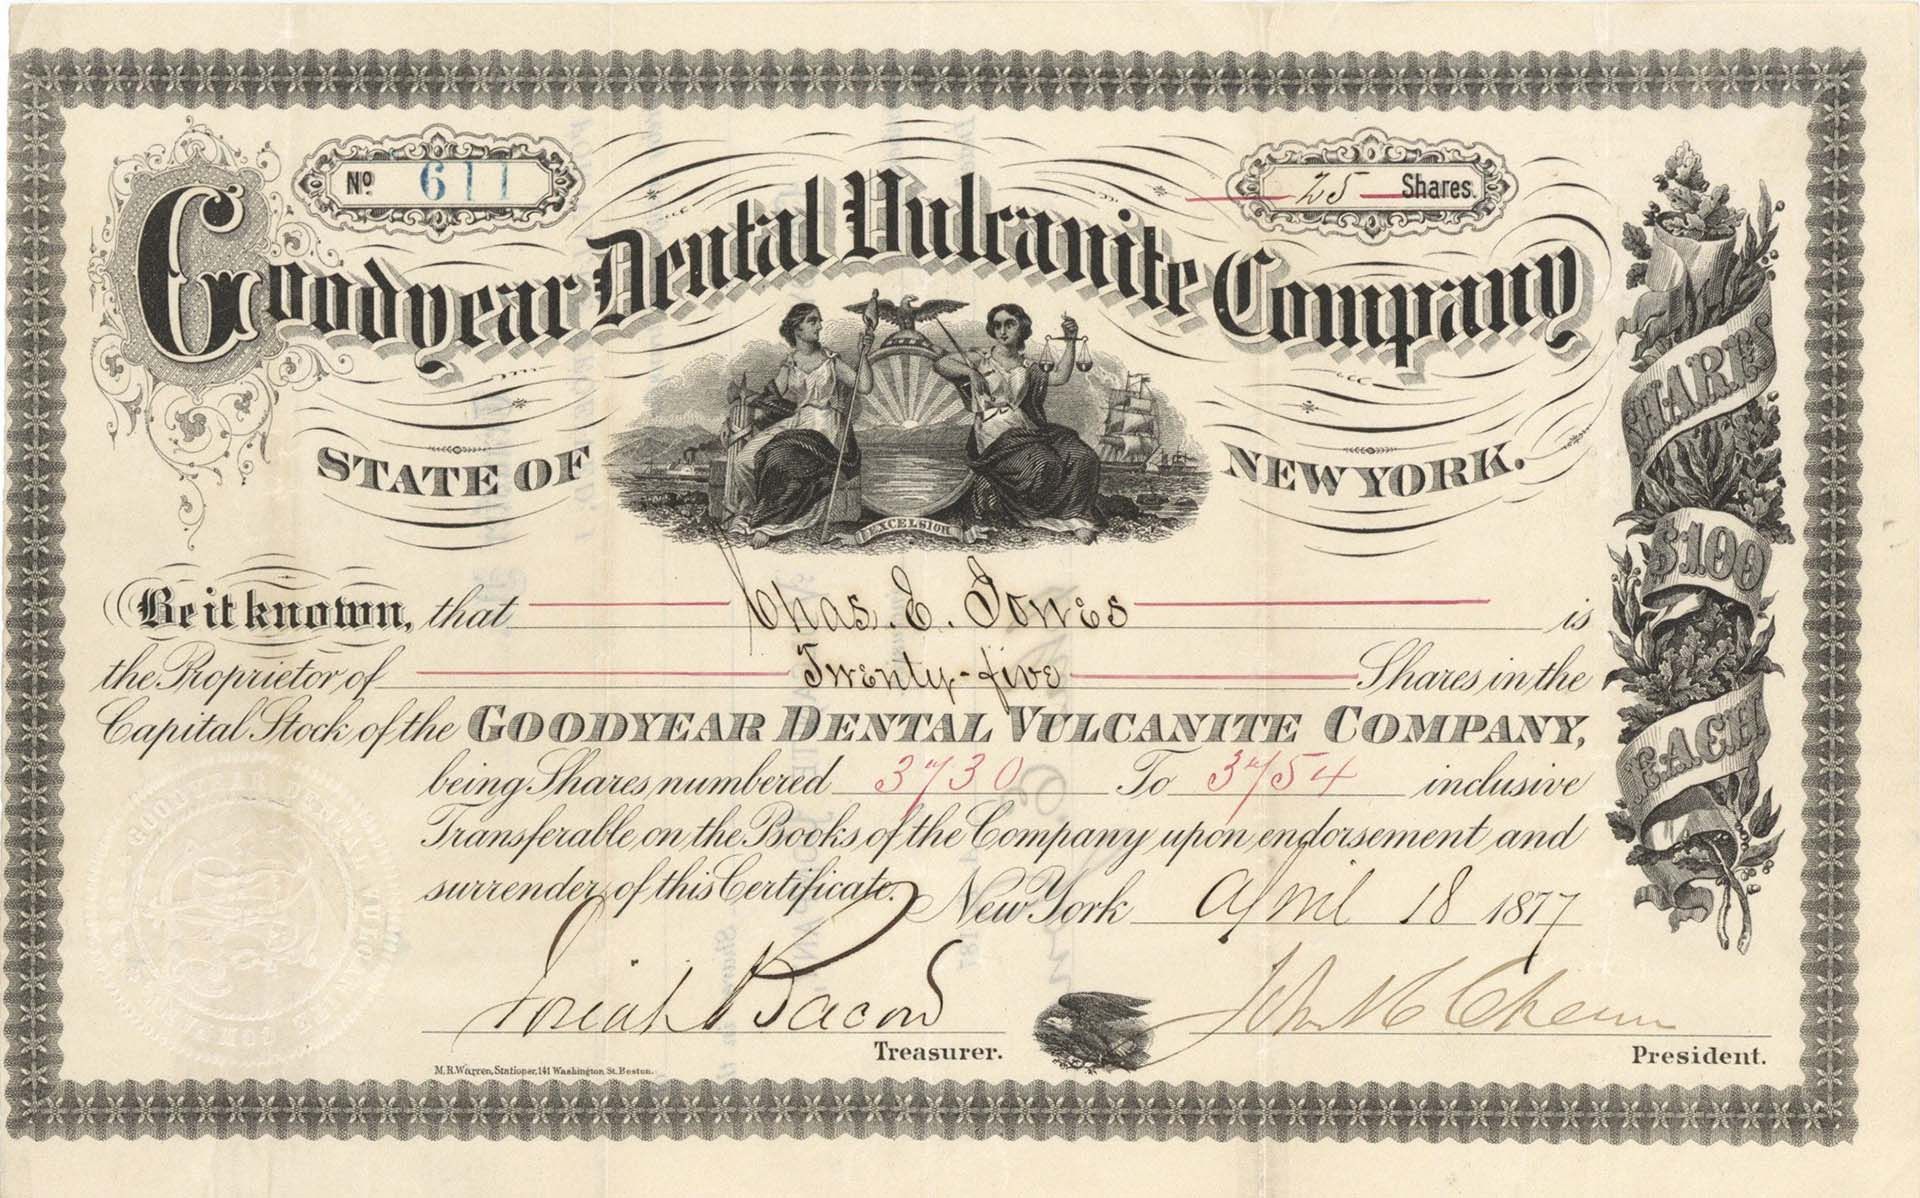 No 611
25 Shares.
Goodyear Dental Vulcanite Company
STATE OF NEW YORK.
EXCELSIOR
Be it known, that Chas. E. Jones is
the Proprietor of Twenty-five Shares in the
Capital Stock of the GOODYEAR DENTAL VULCANITE COMPANY,
being Shares numbered 3730 To 3754 inclusive
Transferable on the Books of the Company upon endorsement and
surrender of this Certificate. New York April 18 1877
Josiah Bacon
Treasurer.
President.
M. R. Warren, Stationer, 141 Washington St. Boston.
SHARES
$100
EACH